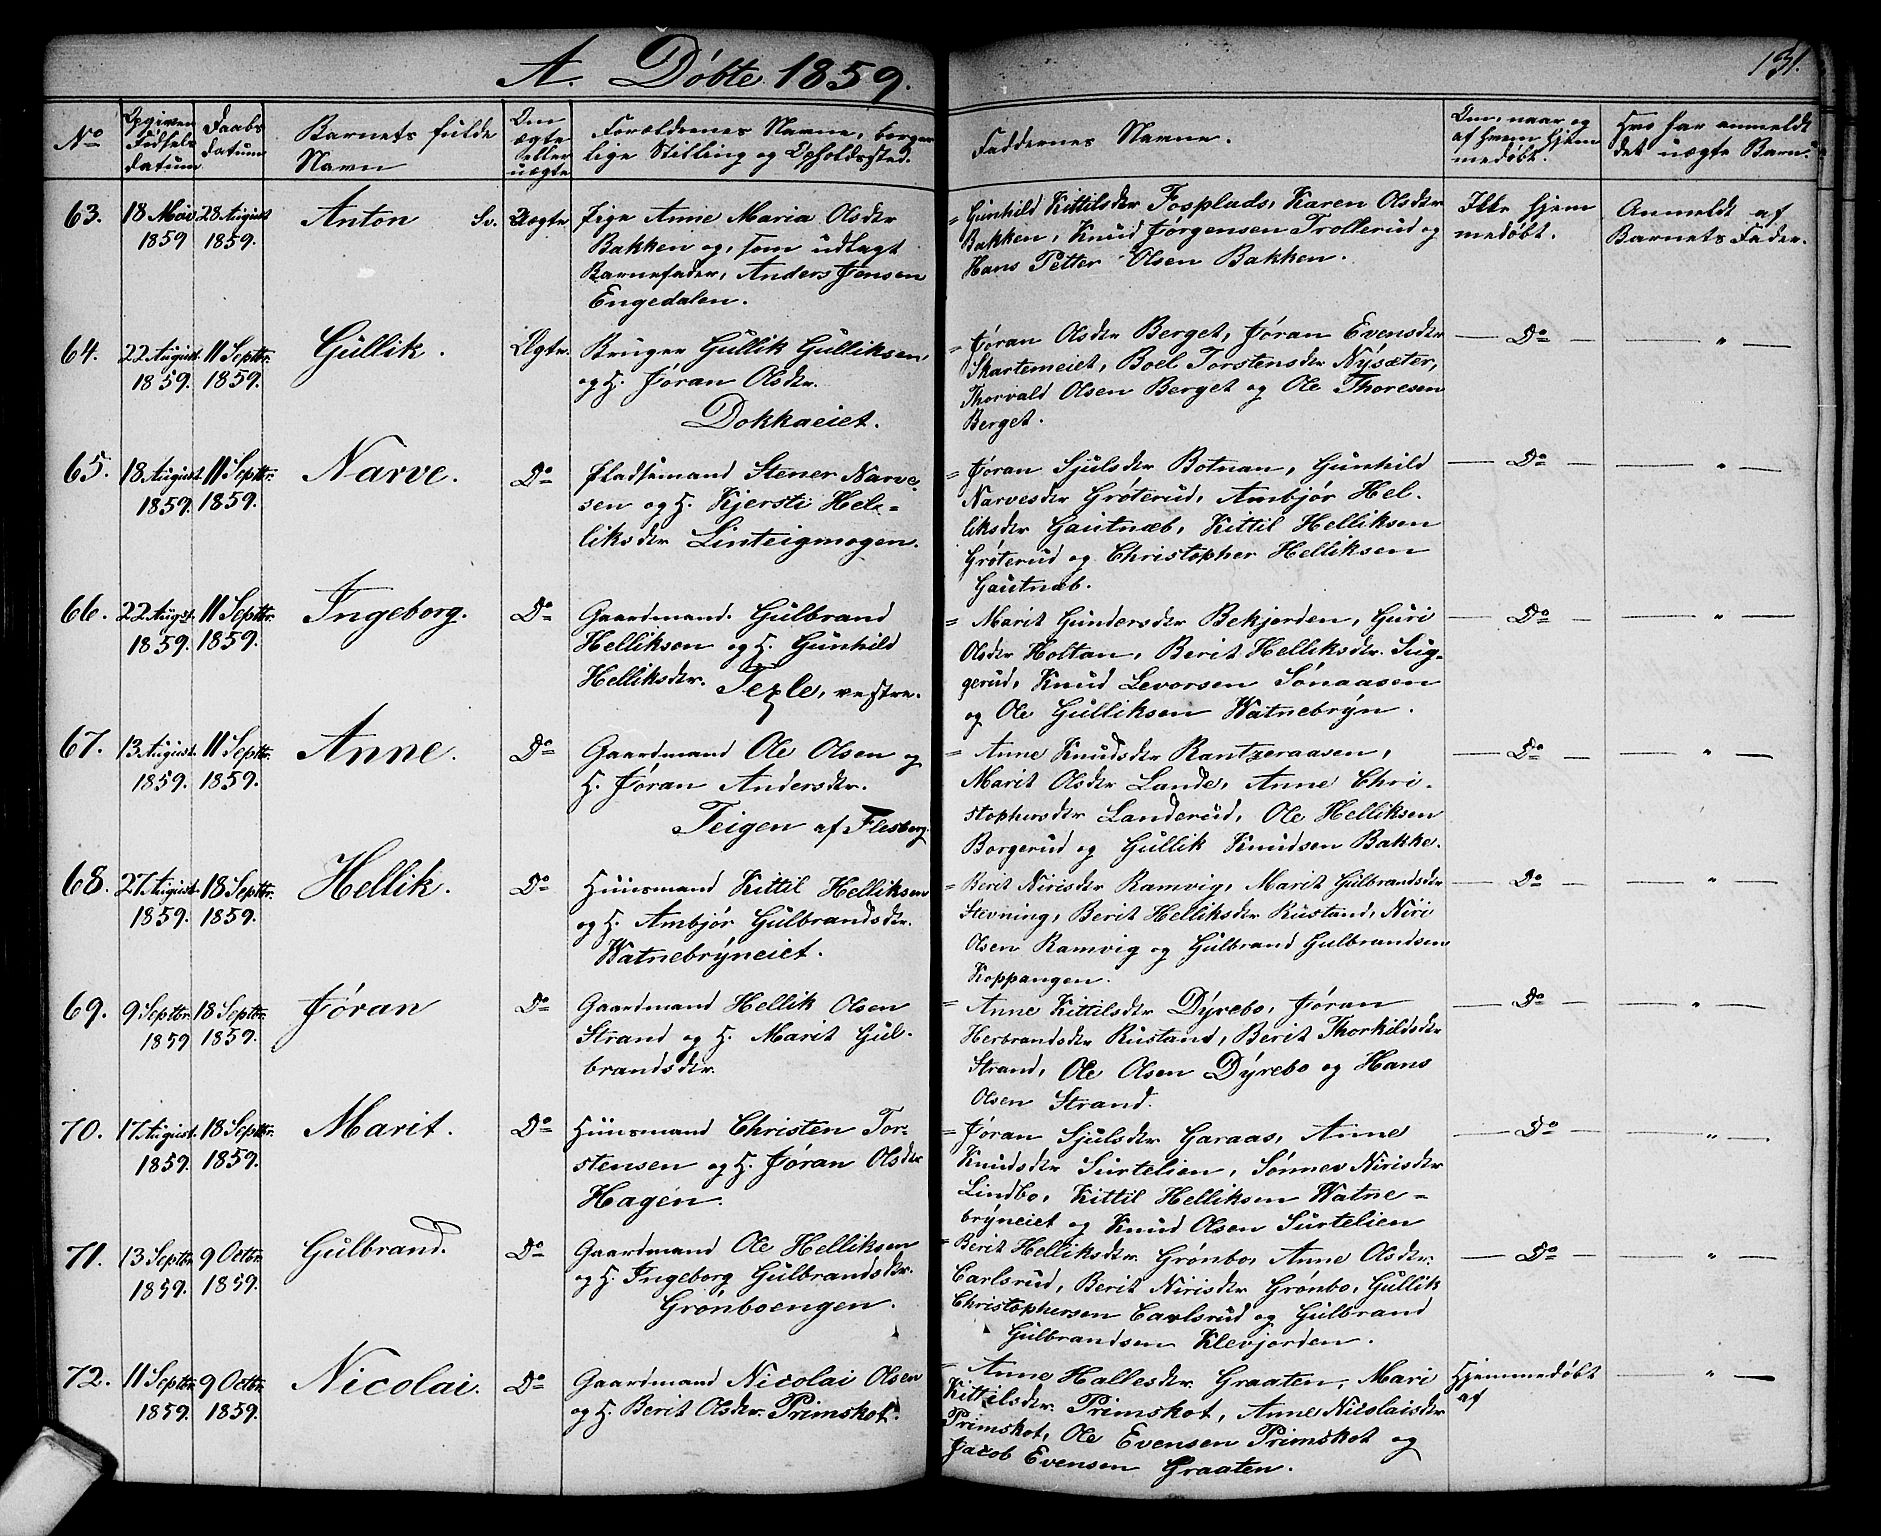 A. Döbte 1859.
131.
No
Opgiven Födsels datum
Daabs datum
Barnets fulde Navn
Om ægte eller uægte
Forældrenes Navne, borgerlige Stilling og Opholdssted.
Faddernes Navne.
Om, naar og af hvem hjemmedöbt.
Hvo har anmeldt det uægte Barn.
63. 18 Mai 1859 28 August 1859. Anton Sv. Uægte
Pige Anne Maria Olsdtr
Bakken og, som udlagt
Barnefader, Anders Jensen
Engedalen.
= Gunhild Kittilsdtr Fosplads, Karen Olsdtr
Bakken, Knud Jörgensen Trollerud og
Hans Petter Olsen Bakken.
Ikke hjem
medöbt.
Anmeldt af
Barnets Fader.
64. 22 August. 1859. 11 Septbr. 1859. Gullik. Ægte.
Bruger Gullik Gulliksen
og H. Jöran Olsdtr.
Dokkaeiet.
= Jöran Olsdtr Berget, Jöran Evensdtr
Skartemeiet, Boel Torstensdtr Nysæter,
Thorvald Olsen Berget og Ole Thoresen
Berget.
— Do — — " —
65. 18 August 1859. 11 Septbr. 1859. Narve. Do
Pladsemand Stener Narve-
sen og H. Kjersti Hel-
liksdtr Linteigmogen.
= Jöran Sjulsdtr Botnan, Gunhild
Narvesdtr Gröterud, Ambjör Hel-
liksdtr Gautnæb, Kittil Helliksen
Gröterud og Christopher Helliksen
Gautnæb.
— Do — — " —
66. 22 August. 1859. 11 Septbr. 1859. Ingeborg. Do
Gaardmand. Gulbrand
Helliksen og H. Gunhild
Helliksdtr. Tesle, vestre.
= Marit Gundersdtr Bekjorden, Guri
Olsdtr Holtan, Berit Helliksdtr. Sug-
gerud, Knud Levorsen Sönaasen
og Ole Gulliksen Watnebryn.
— Do — — " —
67. 13 August. 1859. 11 Septbr. 1859. Anne. Do
Gaardmand Ole Olsen og
H. Jöran Andersdtr.
Teigen af Flesberg.
= Anne Knudsdtr Rantzeraasen,
Marit Olsdtr Lande, Anne Chri-
stophersdtr Landerud, Ole Helliksen
Borgerud og Gullik Knudsen Bakke.
— Do — — " —
68. 27 August. 1859. 18 Septbr. 1859. Hellik. Do
Huusmand Kittil Helliksen
og H. Ambjör Gulbrandsdtr.
Watnebryneiet.
= Berit Nirisdtr Ramvig, Marit Gulbrandsdtr
Stevning, Berit Helliksdtr Rustand, Niri
Olsen Ramvig og Gulbrand Gulbrandsen
Koppangen.
— Do — — " —
69. 9 Septbr. 1859 18 Septbr. 1859. Jöran Do
Gaardmand Hellik Olsen
Strand og H. Marit Gul-
brandsdtr.
= Anne Kittilsdtr Dyrebo, Jöran
Herbrandsdtr Rustand, Berit Thorkildsdtr
Strand, Ole Olsen Dyrebo og Hans
Olsen Strand.
— Do — — " —
70. 17 August. 1859. 18 Septbr. 1859. Marit. Do
Huusmand Christen Tor-
stensen og H. Jöran Olsdtr
Hagen.
= Jöran Sjulsdtr Garaas, Anne
Knudsdtr Surtelien, Sönnev Nirisdtr
Lindbo, Kittil Helliksen Watne-
bryneiet og Knud Olsen Surtelien
— Do — — " —
71. 13 Septbr. 1859. 9 Octbr. 1859. Gulbrand. Do
Gaardmand Ole Helliksen
og H. Ingeborg Gulbrandsdtr.
Grönboengen.
= Berit Helliksdtr. Grönbo, Anne Olsdtr.
Carlsrud, Berit Nirisdtr Grönbo, Gullik
Christophersen Carlsrud og Gulbrand
Gulbrandsen Klevjorden.
— Do — — " —
72. 11 Septbr. 1859. 9 Octbr. 1859. Nicolai. Do
Gaardmand Nicolai Olsen
og H. Berit Olsdtr. Primskot.
= Anne Hallesdtr. Graaten, Mari
Kittilsdtr. Primskot, Anne Nicolaisdtr
Primskot, Ole Evensen Primskot og
Jacob Evensen Graaten.
Hjemmedöbt
af
— " —